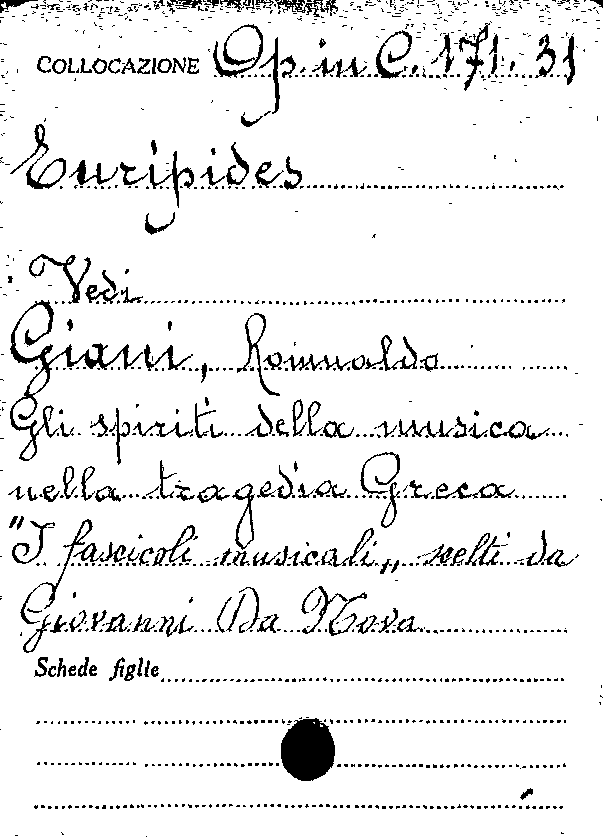 COLLOCAZIONE Op. in C. 171. 31
Euripides
Vedi
Giani, Romualdo
Gli spiriti della musica
nella tragedia Greca
"I fascicoli musicali„ scelti da
Giovanni Da Nova
Schede figlie